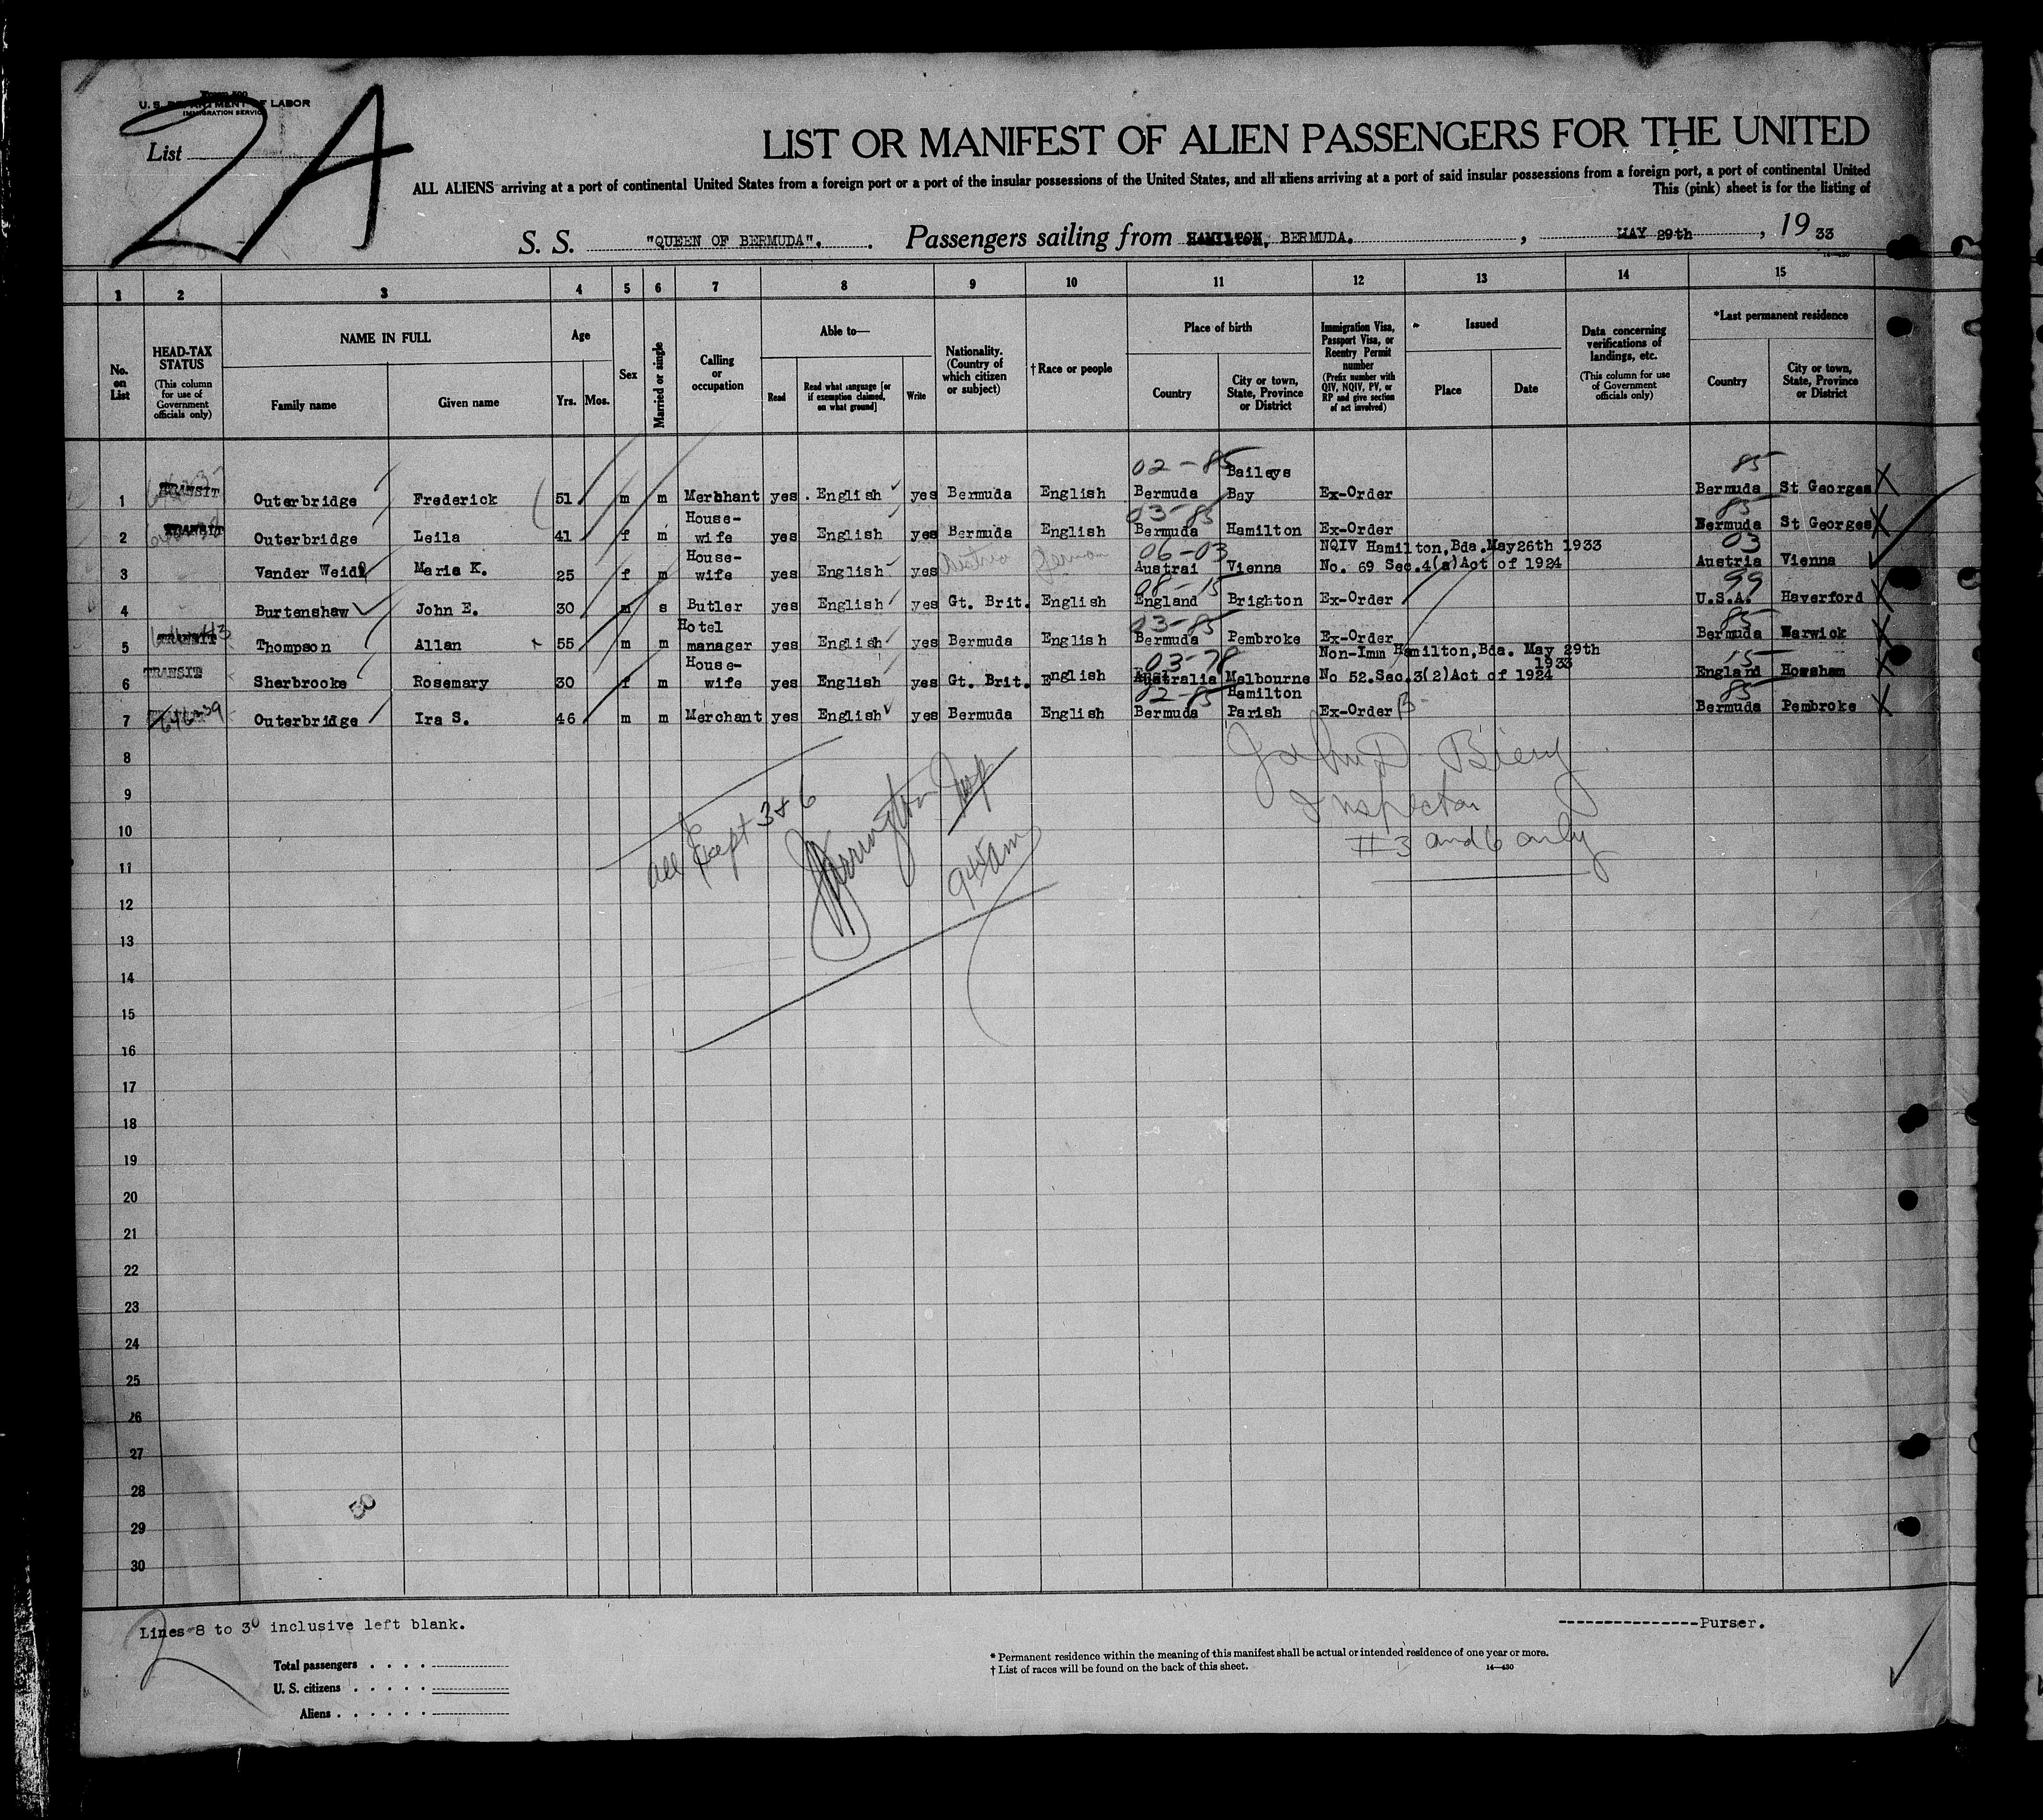 2A
Form 500
U. S. DEPARTMENT OF LABOR
IMMIGRATION SERVICE
List
LIST OR MANIFEST OF ALIEN PASSENGERS FOR THE UNITED
ALL ALIENS arriving at a port of continental United States from a foreign port or a port of the insular possessions of the United States, and all aliens arriving at a port of said insular possessions from a foreign port, a port of continental United
This (pink) sheet is for the listing of
S. S. "QUEEN OF BERMUDA". Passengers sailing from HAMILTON, BERMUDA. , MAY 29th , 19 33
14—430
1 2 3 4 5 6 7 8 9 10 11 12 13 14 15
No. on List
HEAD-TAX STATUS (This column for use of Government officials only)
NAME IN FULL
Family name Given name
Age
Yrs. Mos.
Sex
Married or single
Calling or occupation
Able to—
Read
Read what language [or if exemption claimed, on what ground]
Write
Nationality. (Country of which citizen or subject)
†Race or people
Place of birth
Country
City or town, State, Province or District
Immigration Visa, Passport Visa, or Reentry Permit number (Prefix number with QIV, NQIV, PV, or RP and give section of act involved)
Issued
Place Date
Data concerning verifications of landings, etc. (This column for use of Government officials only)
*Last permanent residence
Country
City or town, State, Province or District
02-85 85
1 TRANSIT Outerbridge Frederick 51 m m Merchant yes English yes Bermuda English Bermuda Baileys Bay Ex-Order Bermuda St Georges X
03-85 85
2 TRANSIT Outerbridge Leila 41 f m House-wife yes English yes Bermuda English Bermuda Hamilton Ex-Order Bermuda St Georges X
06-03 03
3 Vander Weidl Maria K. 25 f m House-wife yes English yes Austria German Austrai Vienna NQIV Hamilton,Bda.May26th 1933 No. 69 Sec.4(a)Act of 1924 Austria Vienna
08-15 99
4 Burtenshaw John E. 30 m s Butler yes English yes Gt. Brit. English England Brighton Ex-Order U.S.A. Haverford X
03-85 85
5 TRANSIT Thompson Allan 55 m m Hotel manager yes English yes Bermuda English Bermuda Pembroke Ex-Order Bermuda Warwick X
03-78 15
6 TRANSIT Sherbrooke Rosemary 30 f m House-wife yes English yes Gt. Brit. English Australia Melbourne Non-Imm Hamilton,Bda. May 29th 1933 No 52.Sec.3(2)Act of 1924 England Howsham X
02-85 85
7 Outerbridge Ira S. 46 m m Merchant yes English yes Bermuda English Bermuda Hamilton Parish Ex-Order Bermuda Pembroke X
8
9
10
11
12
13
14
15
16
17
18
19
20
21
22
23
24
25
26
27
28
29
30
All Except 3 & 6
Insp
945am
John D Biery
Inspector
#3 and 6 only
50
Lines 8 to 30 inclusive left blank.
---------------Purser.
Total passengers
U. S. citizens
Aliens
* Permanent residence within the meaning of this manifest shall be actual or intended residence of one year or more.
† List of races will be found on the back of this sheet.
14—430